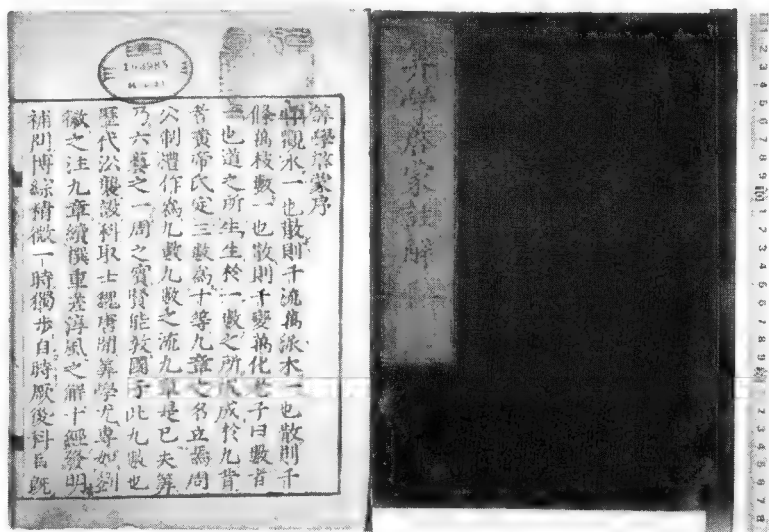 算學啓蒙註解
算學啓蒙序
嘗觀水一也散則千流萬派木一也散則千
條萬枝數一也散則千變萬化老子曰數者
一也道之所生生於一數之所成成於九昔
者黃帝氏定三數爲十等九章之名立焉周
公制禮作爲九數九數之流九章是已夫算
乃六藝之一周之賓賢能敎國子此九數也
歷代沿襲設科取士魏唐間算學尤專如劉
徽之注九章續撰重差淳風之解十經發明
補問博綜精微一時獨步自時厥後科目既